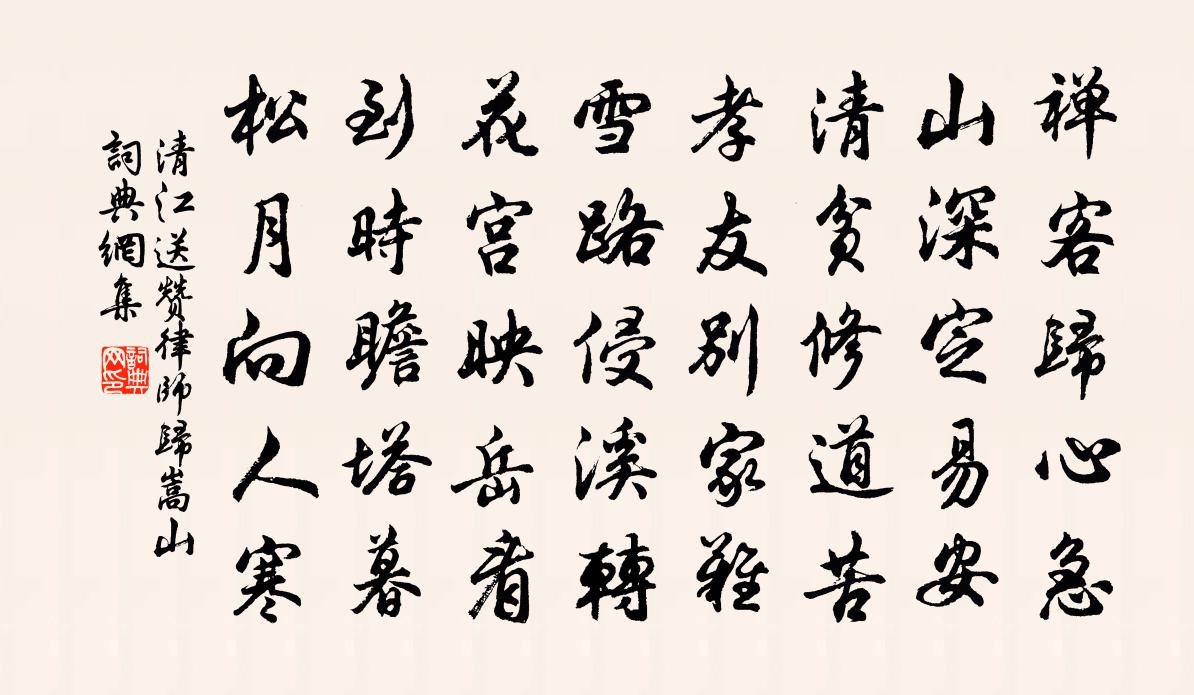 禅客歸心急
山深定易安
清貧修道苦
孝友別家難
雪路侵溪轉
花宮映岳看
到時瞻塔暮
松月向人寒
清江送贊律師歸嵩山
詞典網集
詞典網印